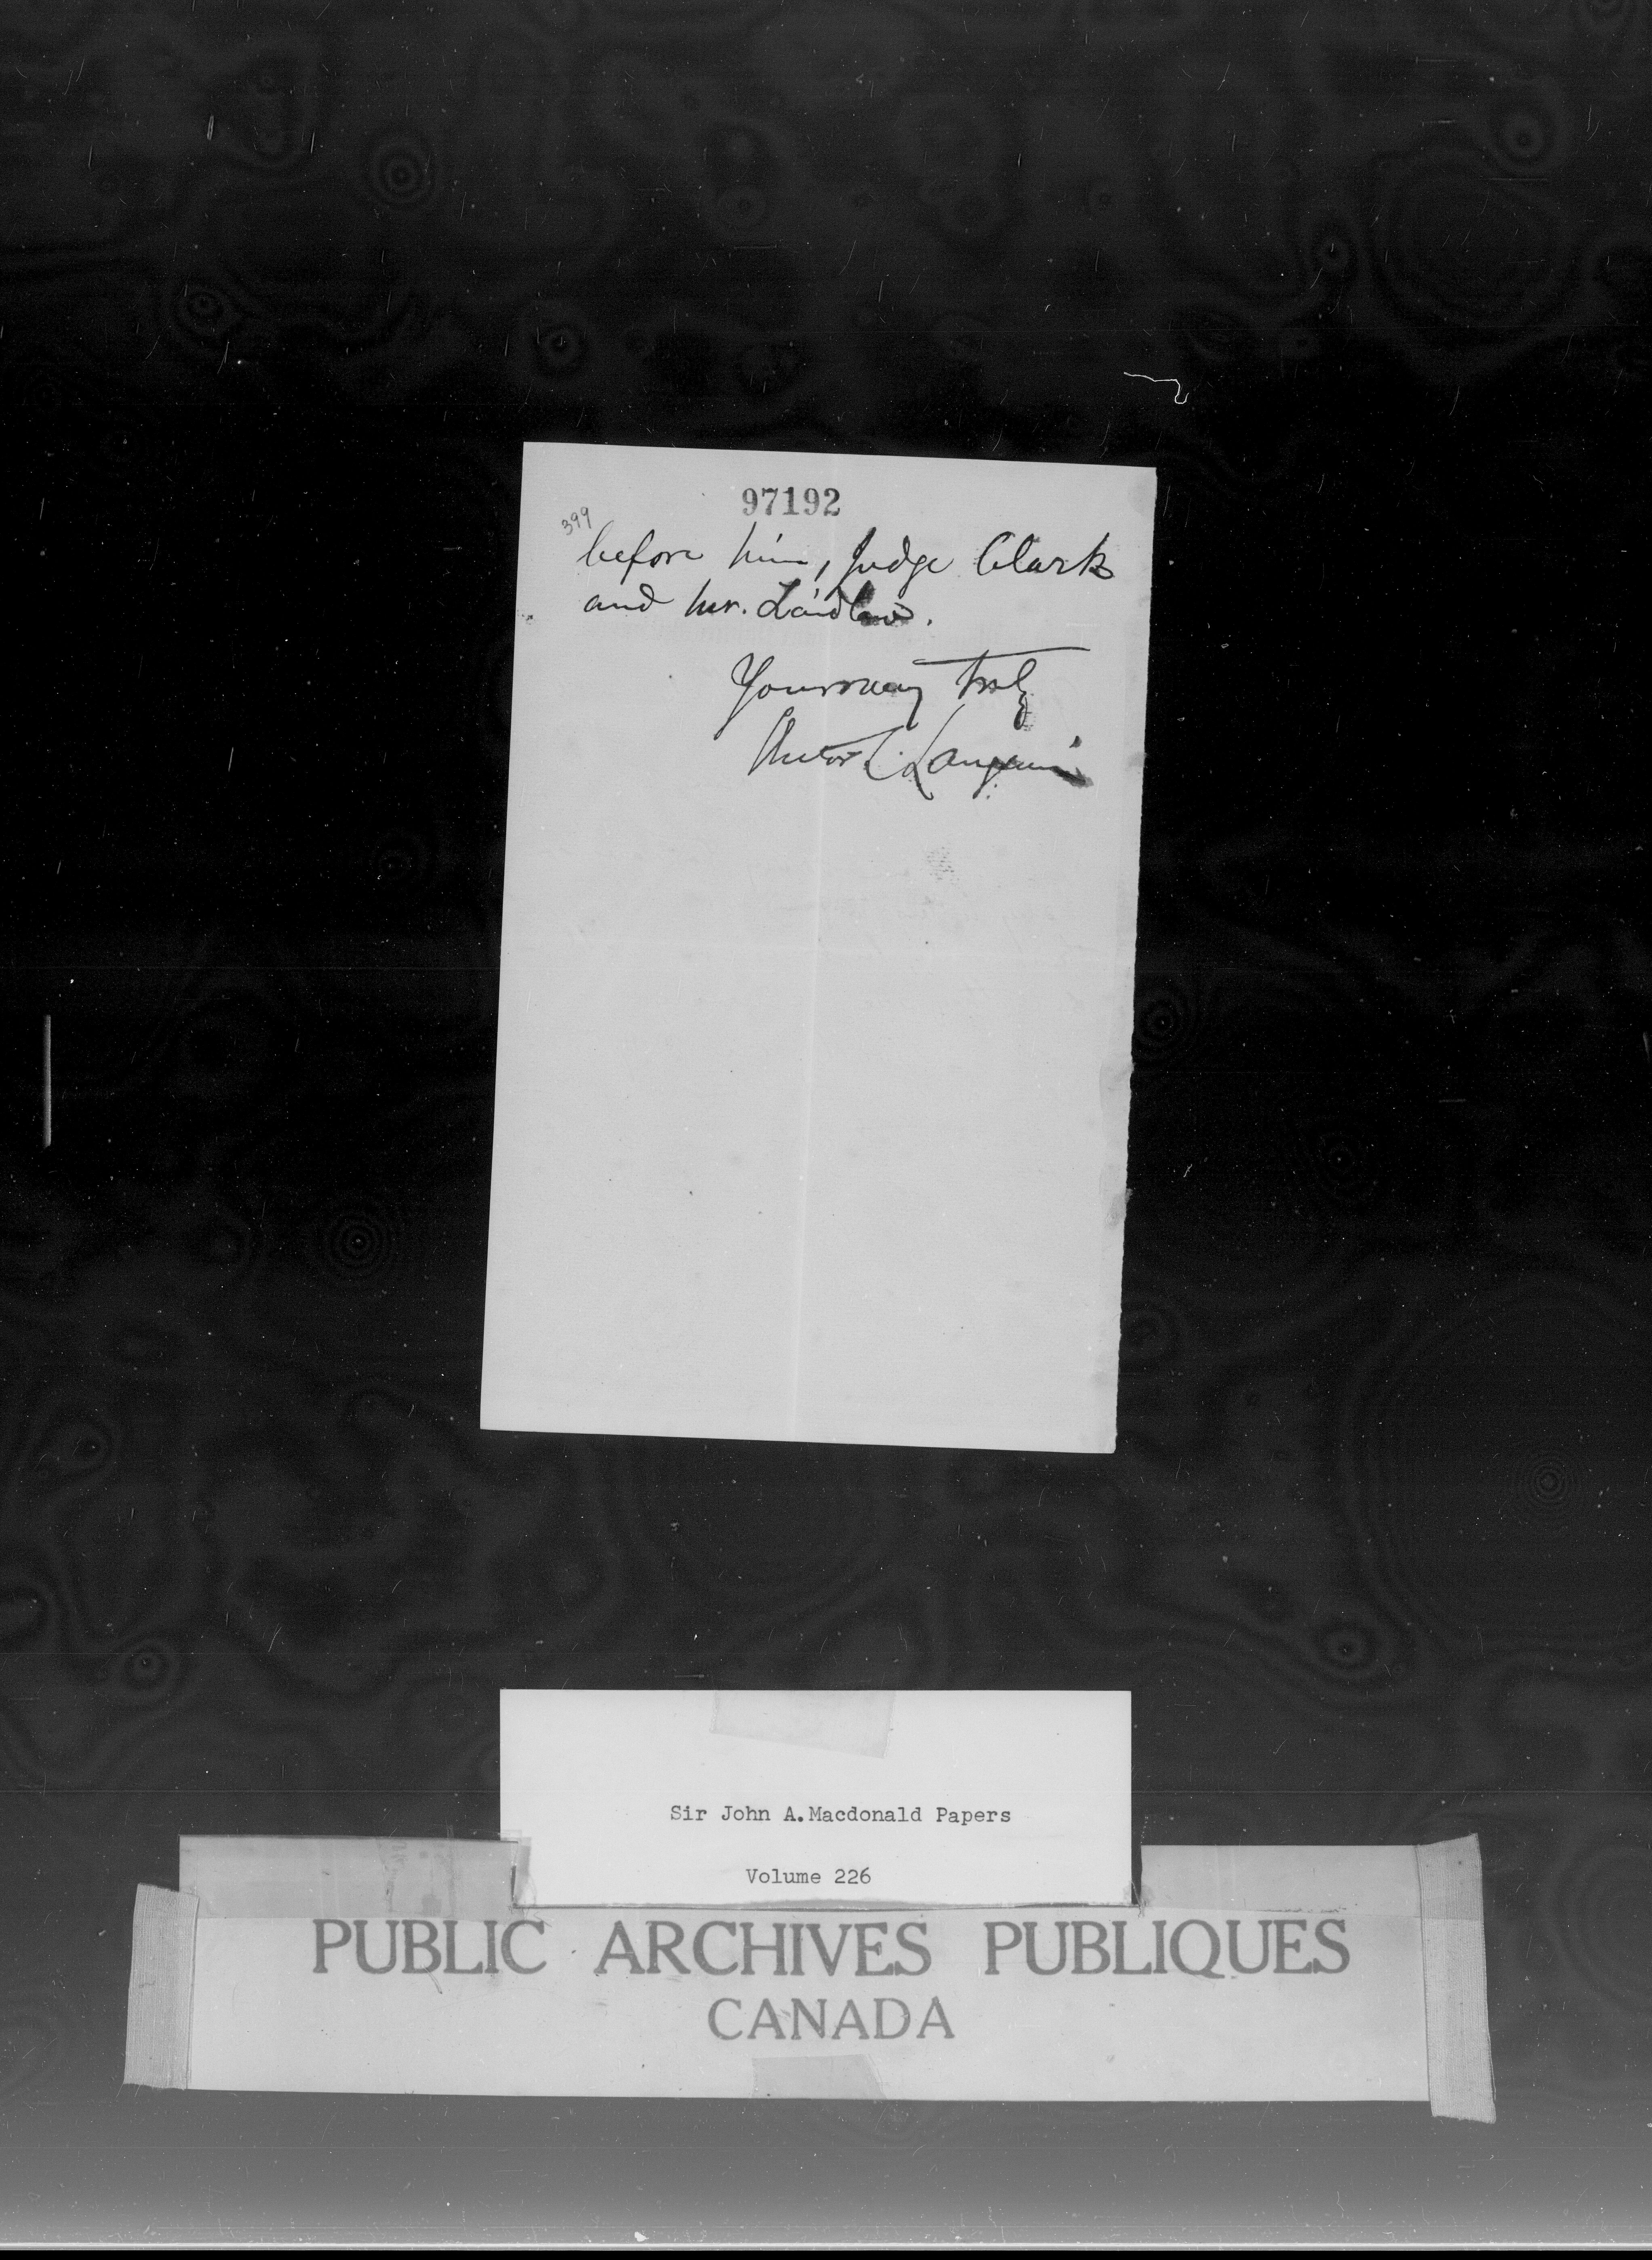 97192
399
before him, Judge Clark
and Mr. Laidlaw.
Yours very truly
Hector L. Langevin
Sir John A. Macdonald Papers
Volume 226
PUBLIC ARCHIVES PUBLIQUES
CANADA